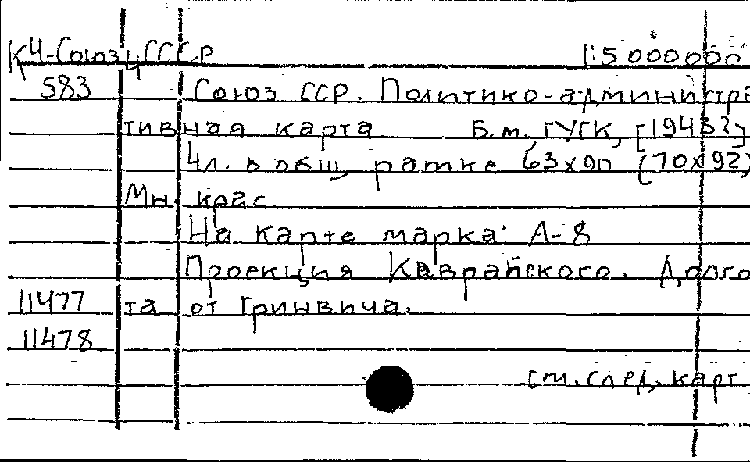 К4-Союз ССР 1:5 000 000
583 Союз ССР. Политико-администра
тивная карта. Б.м., ГУГК, [1943?]
4л. в общ. рамке 63х90 (70х92)
Мн. крас
На карте марка: А-8
Проекция Каврайского. Долго
11477 та от Гринвича.
11478
см. след. карт